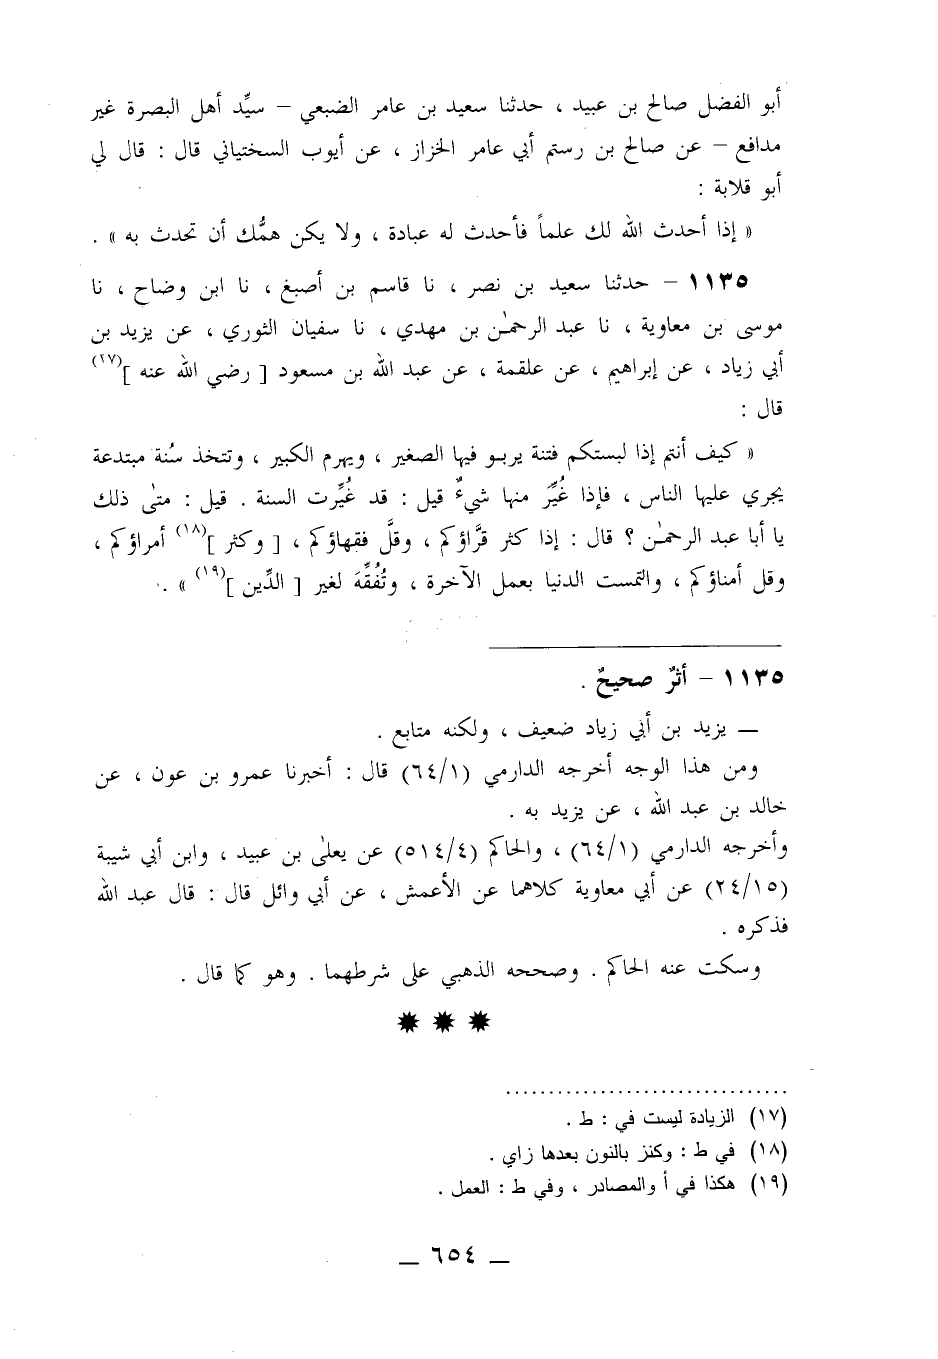 أبو الفضل صالح بن عبيد ، حدثنا سعيد بن عامر الضبعي – سيِّد أهل البصرة غير
مدافع – عن صالح بن رستم أبي عامر الخزاز ، عن أيوب السختياني قال : قال لي
أبو قلابة :
« إذا أحدث الله لك علماً فأحدث له عبادة ، ولا يكن همُّك أن تحدث به » .
١١٣٥ – حدثنا سعيد بن نصر ، نا قاسم بن أصبغ ، نا ابن وضاح ، نا
موسى بن معاوية ، نا عبد الرحمٰن بن مهدي ، نا سفيان الثوري ، عن يزيد بن
أبي زياد ، عن إبراهيم ، عن علقمة ، عن عبد الله بن مسعود [ رضي الله عنه ](١٧)
قال :
« كيف أنتم إذا لبستكم فتنة يربو فيها الصغير ، ويهرم الكبير ، وتتخذ سُنة مبتدعة
يجري عليها الناس ، فإذا غُيِّرَ منها شيءٌ قيل : قد غُيِّرت السنة . قيل : متىٰ ذلك
يا أبا عبد الرحمٰن ؟ قال : إذا كثر قرَّاؤكم ، وقلَّ فقهاؤكم ، [ وكثر ](١٨) أمراؤكم ،
وقل أمناؤكم ، والتمست الدنيا بعمل الآخرة ، وتُفُقِّهَ لغير [ الدِّين ](١٩) » .
١١٣٥ – أثرٌ صحيحٌ .
— يزيد بن أبي زياد ضعيف ، ولكنه متابع .
ومن هذا الوجه أخرجه الدارمي (٦٤/١) قال : أخبرنا عمرو بن عون ، عن
خالد بن عبد الله ، عن يزيد به .
وأخرجه الدارمي (٦٤/١) ، والحاكم (٥١٤/٤) عن يعلىٰ بن عبيد ، وابن أبي شيبة
(٢٤/١٥) عن أبي معاوية كلاهما عن الأعمش ، عن أبي وائل قال : قال عبد الله
فذكره .
وسكت عنه الحاكم . وصححه الذهبي على شرطهما . وهو كما قال .
(١٧) الزيادة ليست في : ط .
(١٨) في ط : وكنز بالنون بعدها زاي .
(١٩) هكذا في أ والمصادر ، وفي ط : العمل .
— ٦٥٤ —